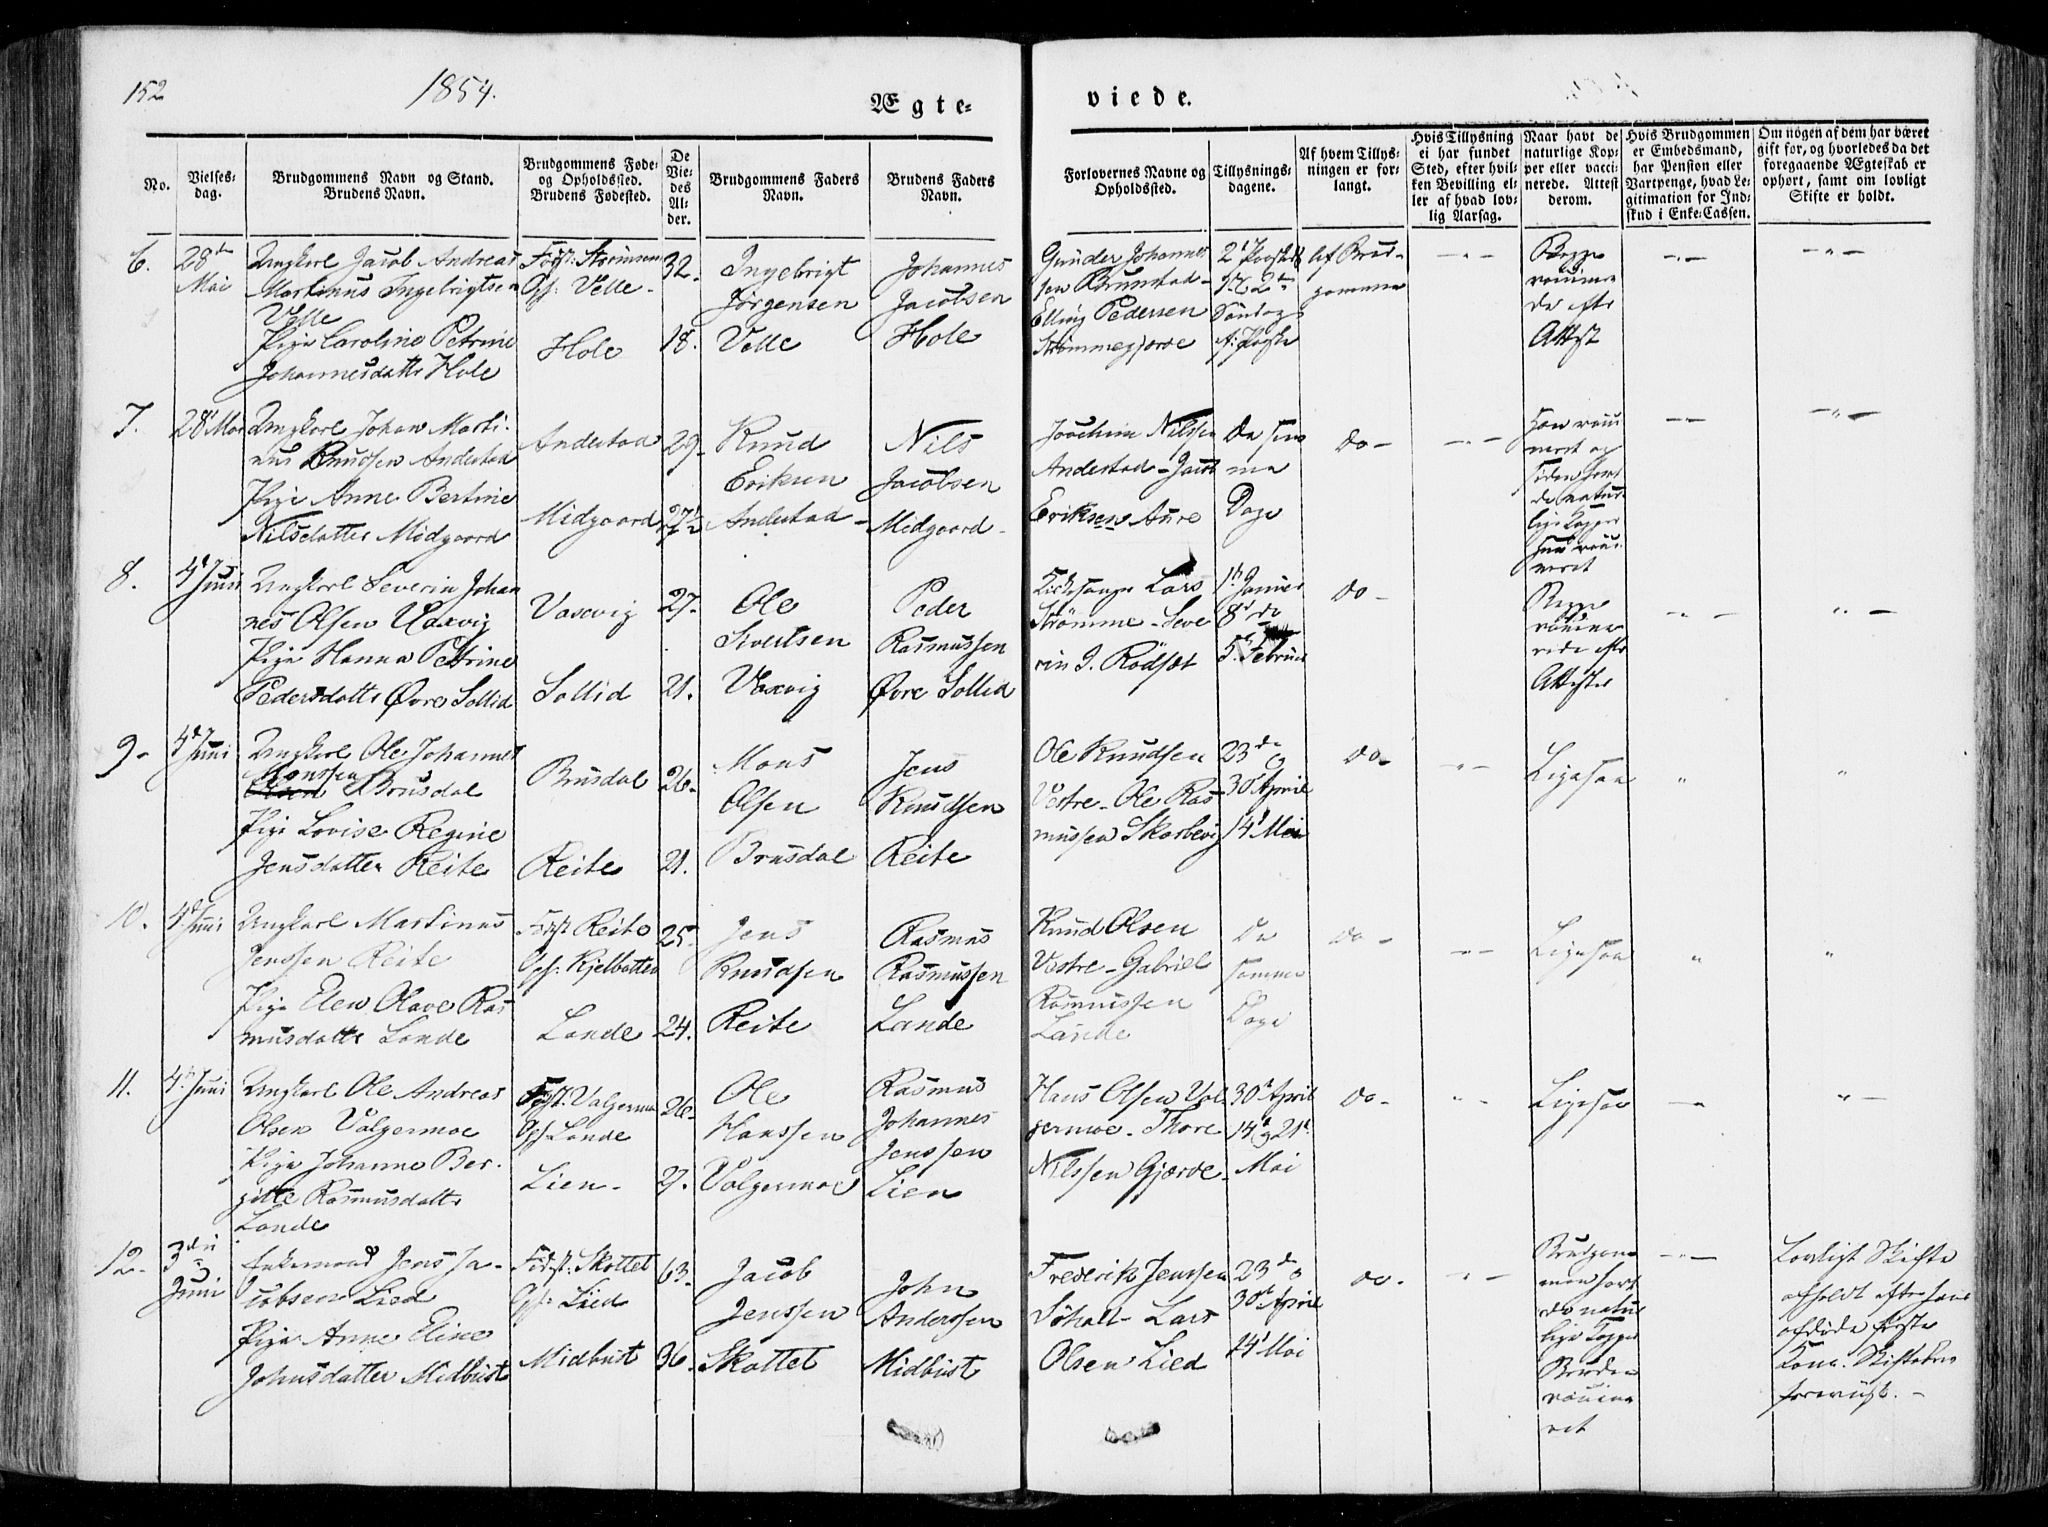 152
1854.
Ægte-
viede.
No.
Vielses-
dag.
Brudgommens Navn og Stand.
Brudens Navn.
Brudgommens Føde-
og Opholdssted.
Brudens Fødested.
De
Vie-
des
Al-
der.
Brudgommens Faders
Navn.
Brudens Faders
Navn.
Forlovernes Navne og
Opholdssted.
Tillysnings-
dagene.
Af hvem Tillys-
ningen er for-
langt.
Hvis Tillysning
ei har fundet
Sted, efter hvil-
ken Bevilling el-
ler af hvad lov-
lig Aarsag.
Naar havt de
naturlige Kop-
per eller vacci-
nerede. Attest
derom.
Hvis Brudgommen
er Embedsmand,
har Pension eller
Vartpenge, hvad Le-
gitimation for Ind-
skud i Enke-Cassen.
Om nogen af dem har været
gift før, og hvorledes da det
foregaaende Ægteskab er
ophørt, samt om lovligt
Skifte er holdt.
6.
28de
Mai
Ungkarl Jacob Andreas
Martinus Ingebrigtsen
Velle
Pige Caroline Petrine
Johannesdatter Hole
Ops: Velle
Hole
32.
18.
Ingebrigt
Jørgensen
Velle
Johannes
Jacobsen
Hole
Gunder Johannes
sen Brunstad
Elling Pedersen
Strømmegjerde
Søndag
Af Brud-
gommen
Begge
Attest
7.
28 Mai
Ungkarl Johan Marti-
nus Knudsen Andestad
Pige Anne Bertine
Nilsdatter Midgaard
Andestad
Midgaard
29
27½
Knud
Eriksen
Andestad
Nils
Jacobsen
Midgaard
Joachim Nilsen
Andestad - Jacob
Eriksen Aure
De sam
me
Dage
do -
Han vaxi
neret og
siden havt
de natur
lige Kopper
hun vaxi
neret
8.
4 Juni
Ungkarl Severin Johan
nes Olsen Vaxvig
Pige Hanna Petrine
Pedersdatter Øvre Sollid
Vaxvig
Sollid
27.
21.
Ole
Sivertsen
Vaxvig
Peder
Rasmussen
Øvre Sollid
Kirkesanger Lars
Strømme - Seve
rin J. Rødset
1 Januar
8 do
5 Februar
do -
Begge
Attester
9
4de Juni
Ungkarl Ole Johannes
Monssen
Brusdal
Pige Lovise Regine
Jensdatter Reite
Brusdal
Reite
26
21.
Mons
Olsen
Brusdal
Jens
Knudsen
Reite
Ole Knudsen
Vestre - Ole Ras
mussen Skorbevig
23de og
30 April
14 Mai
do
Ligesaa
10.
4 Juni
Ungkarl Martinus
Jenssen Reite
Pige Elen Olave Ras
musdatter Lande
Fødst Reite
Ops: Kjelbotten
Lande
25
24.
Jens
Knudsen
Reite
Rasmus
Rasmussen
Lande
Knud Olsen
Vestre - Gabriel
Rasmussen
Lande
De
samme
Dage
do -
Ligesaa
11.
4 Juni
Ungkarl Ole Andreas
Olsen Valgermoe
Pige Johanne Ber-
gitte Rasmusdatter
Lande
Fødst: Valgermoe
Ops Lande
Lien
26
Ole
Hanssen
Valgermoe
Rasmus
Johannes
Jenssen
Lien
Hans Olsen Val
germoe - Thore
Nilssen Gjærde
30 April
14 og 21
Mai
do -
Ligesaa
12.
3die
Juni
Enkemand Jens Ja-
cobsen Lied
Pige Anne Eline
Johnsdatter Midbust
Fødst: Skottet
Ops: Lied
Midbust
63
36
Jacob
Jenssen
Skottet
John
Anderssen
Midbust
Frederik Jenssen
Søholt - Lars
Olsen Lied
23de og
30 April
14 Mai
do -
Brudgom
men havt
de natur
lige Kopper
Bruden
vaxine
ret
Lovligt Skifte
afholdt efter hans
afdøde første
Kone. Skiftebrev
foreviist. -